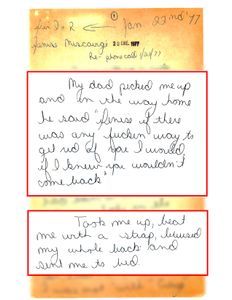 Jan 22nd '77
Denise
30 DEC 1977
Re: phone call
My dad picked me up
and on the way home
he said "Denise if there
was any fucken way to
get rid of you I would
if I knew you wouldn't
come back"
Took me up, beat
me with a strap, bruised
my whole back and
sent me to bed